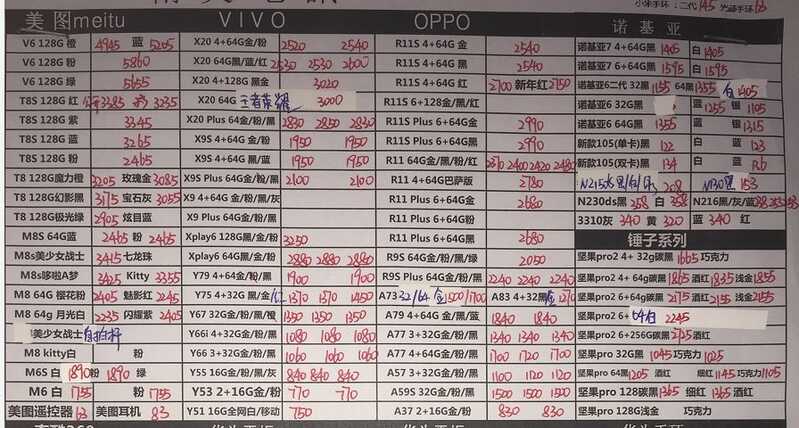 小米手环:二代145 光感手环
美图meitu VIVO OPPO 诺基亚
V6 128G 橙 4945 蓝 5205 X20 4+64G金/粉 2520 2540 R11S 4+64G 金 2540 诺基亚7 4+64G黑 1405 白 1405
V6 128G 粉 5860 X20 64G黑/蓝/红 2530 2530 2600 R11S 4+64G 黑 2540 诺基亚7 6+64G黑 1595 白 1595
V6 128G 绿 5655 X20 4+128G 黑金 3020 R11S 4+64G 红 2700 新年红 2750 诺基亚6二代 32黑 1155 64黑 1355 白 1405
T8S 128G 红 3385 3235 X20 64G 王者荣耀 3000 R11S 6+128G金/黑/红 诺基亚6 32G黑 蓝 1255 银 1105
T8S 128G 紫 3345 X20 Plus 64G金/粉/黑 2830 2850 2830 R11S Plus 6+64G金 2990 诺基亚6 64G黑 1355 蓝 银 1315
T8S 128G 蓝 3265 X9S 4+64G金/粉 1950 1950 R11S Plus 6+64G黑 2990 新款105(单卡)黑 122 蓝 白 123
T8S 128G 粉 2465 X9S 4+64G黑/蓝 1950 1950 R11 64G金/黑/粉/红 2370 2400 2420 2480 新款105(双卡)黑 134 蓝 白 136
T8 128G魔力橙 3205 玫瑰金 3085 X9S Plus 64G金/粉/黑 2100 2100 R11 4+64G巴萨版 2780 208 153
T8 128G幻影黑 3175 宝石灰 3055 X9 4+64G金/粉/黑/灰 R11 Plus 6+64G金 2680 N230ds黑 258 白 358 N216黑/灰/蓝
T8 128G极光绿 2905 炫目蓝 X9 Plus 64G金/粉/黑 R11 Plus 6+64G粉 3310灰 340 黄 320 蓝 340 红
M8S 64G蓝 2465 粉 2465 Xplay6 128G黑/金/粉 3250 R11 Plus 6+64G黑 2680 锤子系列
M8s美少女战士 3415 七龙珠 Xplay6 64G金/粉/灰 2880 2880 2880 R9S 64G金/粉/黑/绿 2050 坚果pro2 4+ 32g碳黑 1665 巧克力
M8s哆啦A梦 3425 Kitty 3355 Y79 4+64G金/粉/黑 1900 1900 R9S Plus 64G金/粉/黑 2240 2240 2240 坚果pro2 4+ 64g碳黑 1865 酒红 1835 浅金 1855
M8 64G 樱花粉 2405 魅影红 2245 Y75 4+32G 黑/金/红 1370 1370 1450 A73 32/64 金 1500/1700 A83 4+32黑 金 1270 坚果pro2 6+64g碳黑 2175 酒红 2155 浅金 2155
M8 64g 月光白 2235 闪耀紫 2405 Y67 32G金/粉/黑/灰 A79 4+64G金/黑/蓝 1840 1840 坚果pro2 6+ 64白 2245
美少女战士 自拍杆 Y66i 4+32G金/粉/黑 1080 1080 1080 A77 3+32G金/粉/黑 1340 1340 1340 坚果pro2 6+256G碳黑 2725 酒红
M8 kitty白 粉 Y66 3+32G金/粉/黑 1060 1060 1060 A77 4+64G金/粉/黑 1700 1720 1700 坚果pro 32G黑 1045 巧克力 1025
M6S 白 1890 粉 1890 绿 Y55 16G金/粉/黑/灰 840 840 840 A57 3+32G金/粉/黑 1100 1120 1100 坚果pro 64G黑 1205 酒红 细红 1145 巧克力 1105
M6 白 1755 粉 1755 Y53 2+16G金/粉 770 770 A59S 32G金/粉/黑 1500 1500 1500 坚果pro 128碳黑 1365 细红 1365 酒红
美图遥控器 63 美图耳机 83 Y51 16G全网白/移动 750 A37 2+16G金/粉 830 830 坚果pro 128G浅金 巧克力